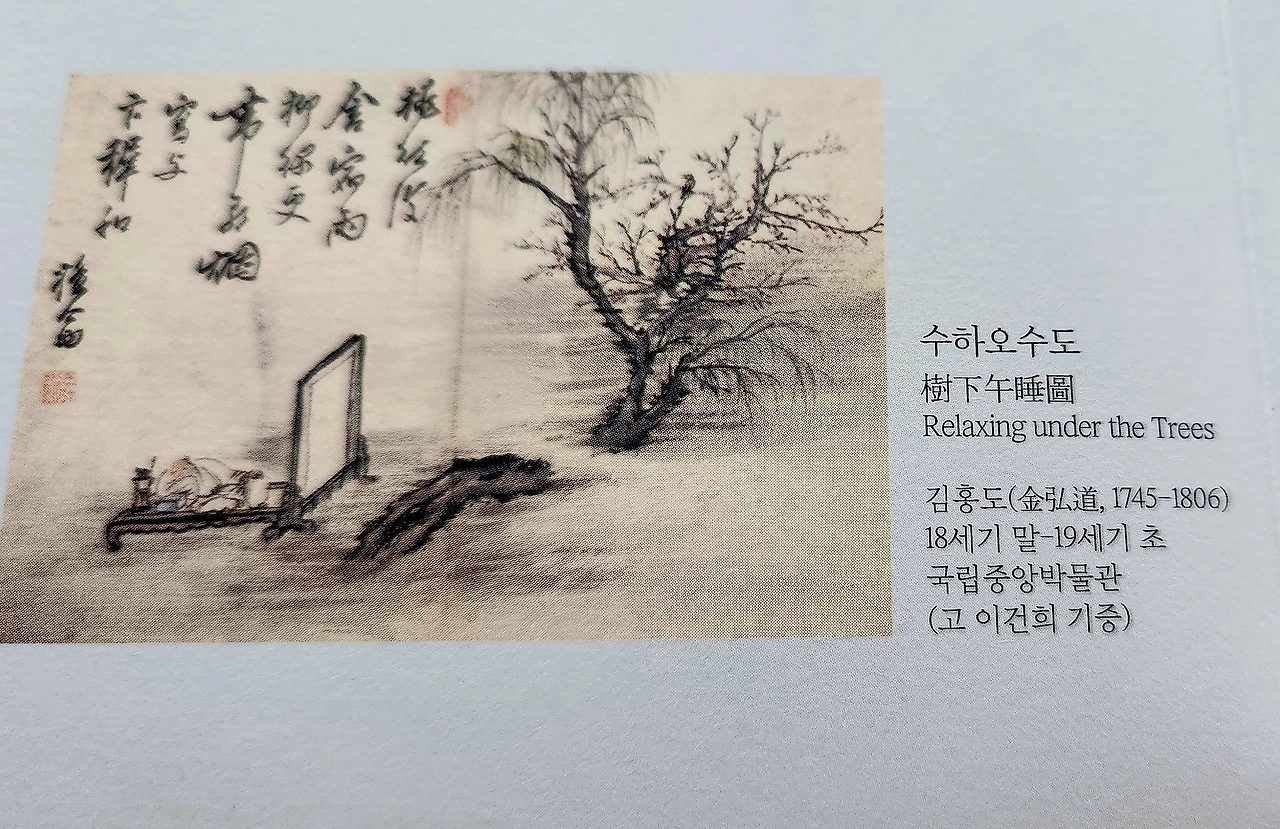 桃紅復
含宿雨
柳綠更
帶烟
寫与
卞穉和
수하오수도
樹下午睡圖
Relaxing under the Trees
김홍도(金弘道, 1745-1806)
18세기 말-19세기 초
국립중앙박물관
(고 이건희 기증)